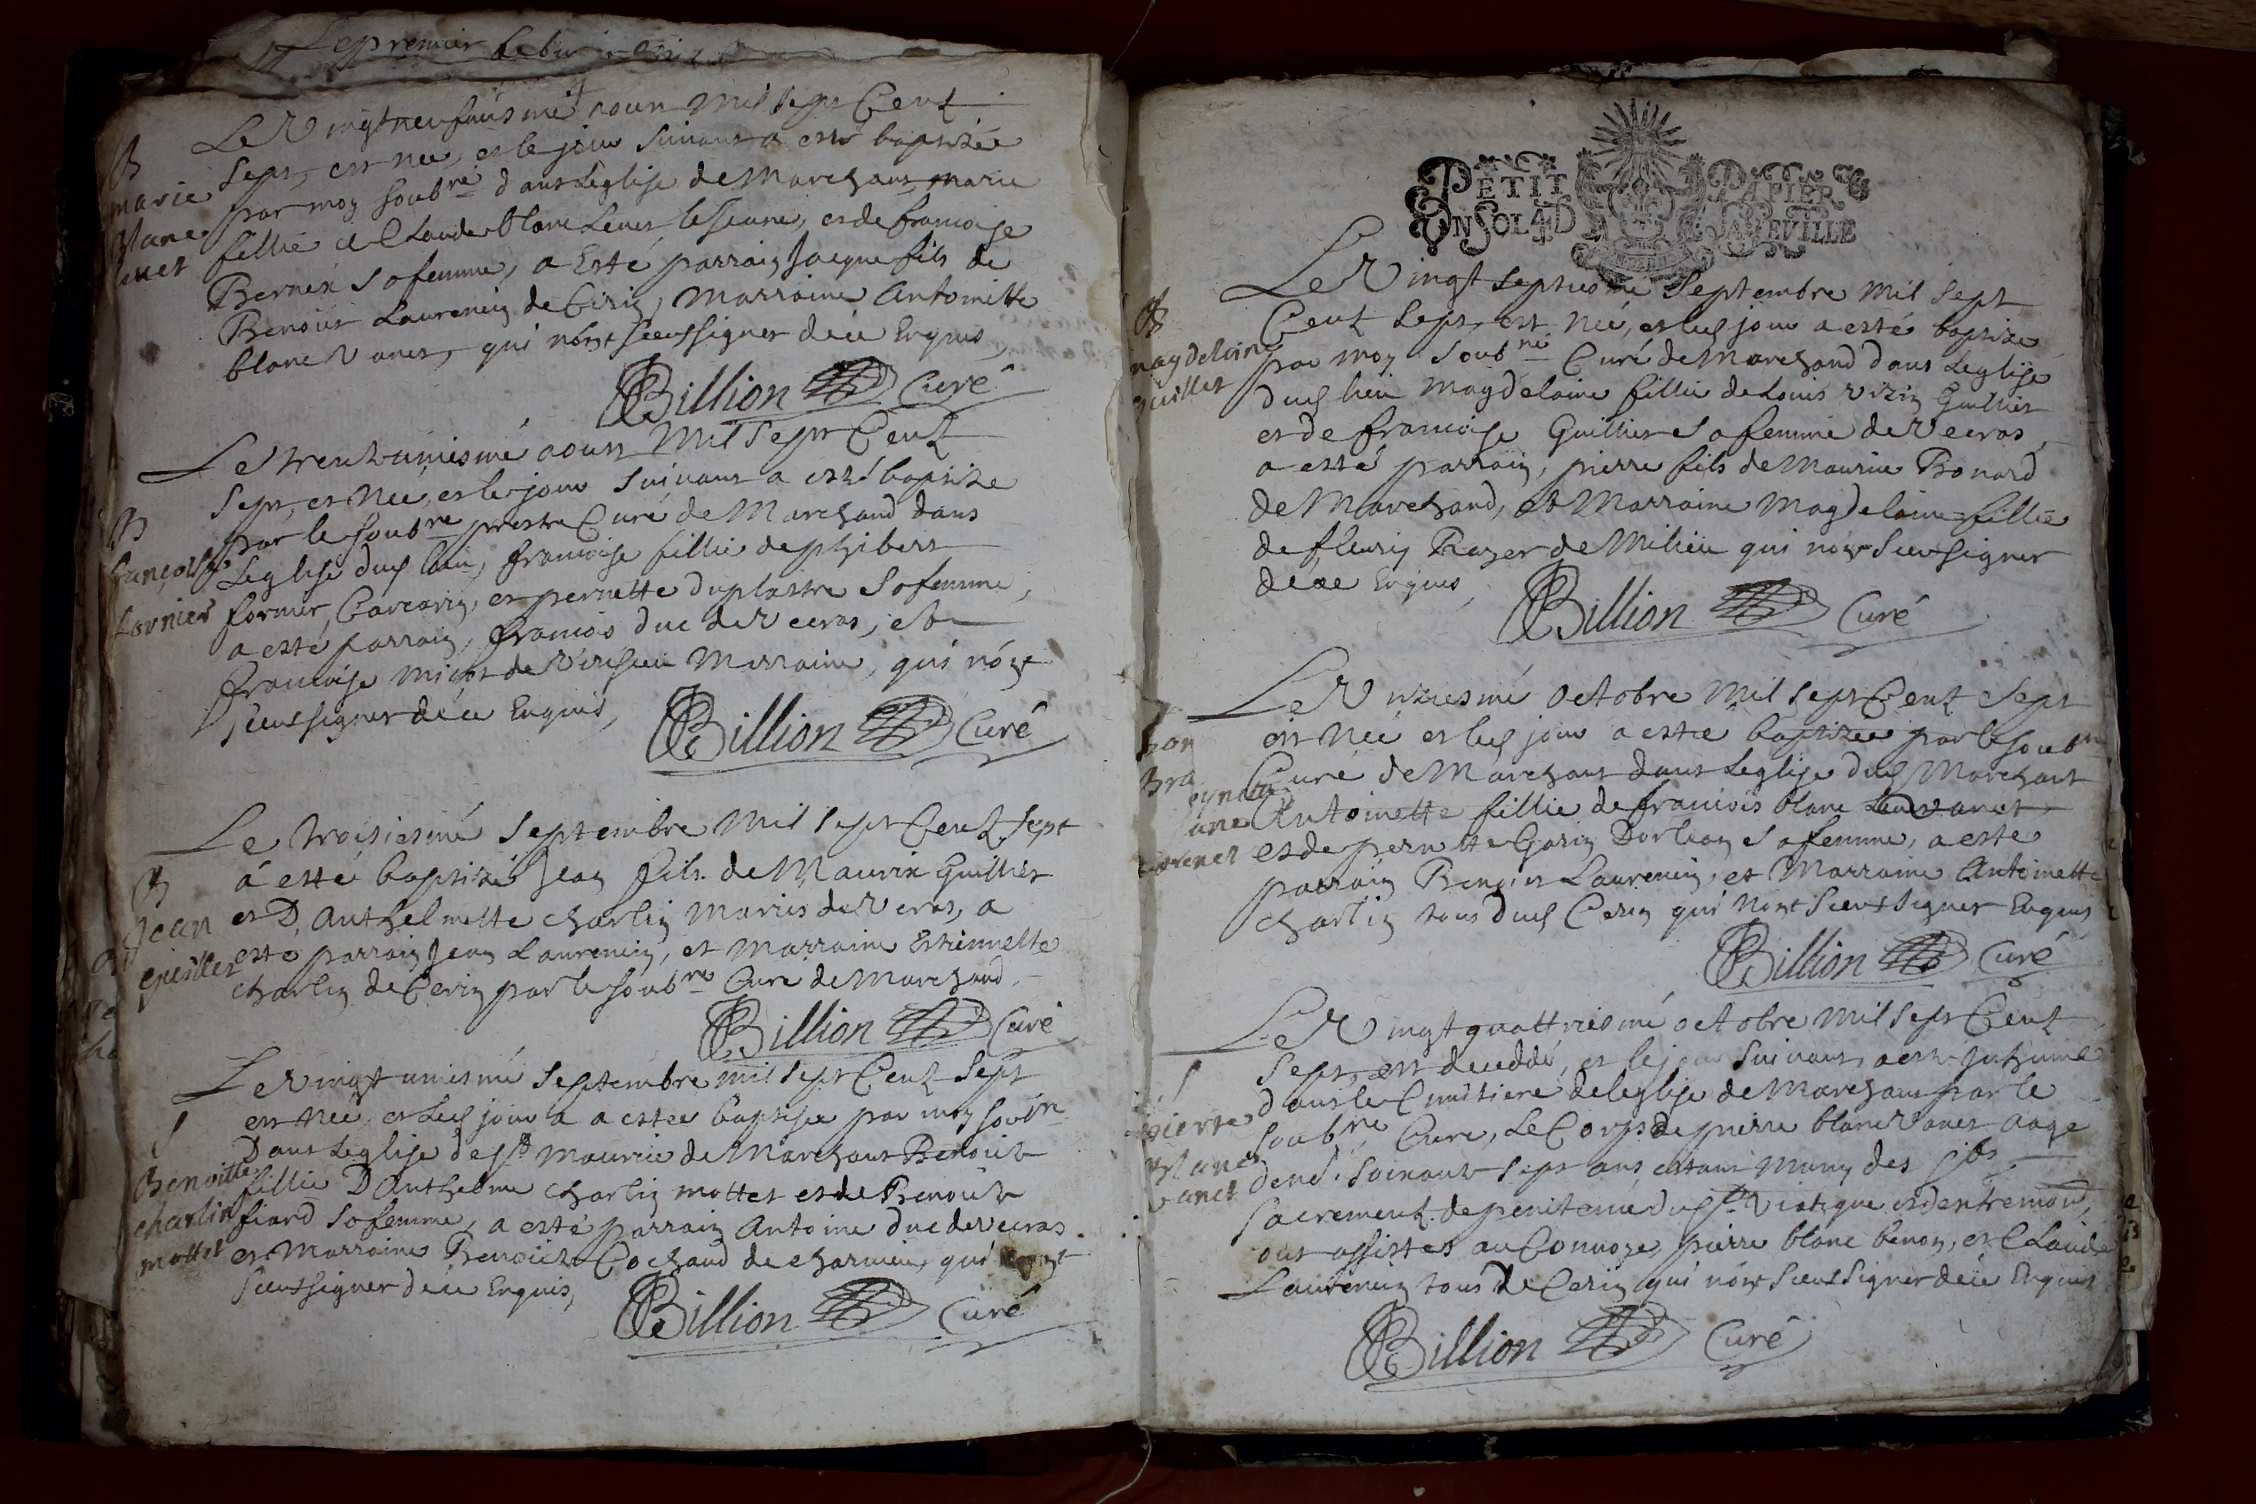 Le premier
Le Vingt neufuiesme aoust Mil Sept Cent
B
Sept, est née, et le jour suivant a esté baptisée
marie
par moy soubné dans Leglise de Marchant marie
blanc
fillie de Claude blanc Levet le Jeune, et de francoise
Bernex sa femme, a Esté parrain Jacque fils de
Benoist Laurencin de Cirin, Marraine Antoinette
blanc Vanet, qui n'ont sceu signer de ce Enquis
Billion Curé
Le trentuniesme aoust Mil Sept Cent
Sept, est Née, et le jour suivant a esté baptisée
B
par le soubné prestre Curé de Marchand dans
françoise
Leglise dud lieu, francoise fillie de phibert
fornier
fornier, Carcarin, et pernette duplastre sa femme,
a esté parrain, francois duc de Vecras, et
francoise de Marraine, qui n'ont
sceu signer de ce Enquis,
Billion Curé
Le troisiesme Septembre Mil Sept Cent Sept
á esté baptisé Jean fils de Maurix Guillet
B
Jean
et D'Anthelmette charlin Mariés de Vecras, a
guillet
esté parrain Jean Laurencin, et Marraine Estiennette
charlin de Cerin par le soubné Cure de Marchand
Billion Curé
Le Vingt uniesme Septembre Mil Sept Cent Sept
est Née, et Led jour a a estee baptisee par moy soubn
Dans Leglise de St Maurice de Marchant Benoite
Benoitte
fillie D'Anthelme charlin mottet et de Benoite
charlin
fiard sa femme, a esté parrain Antoine duc de vecras
mottet
et Marraine Benoiste Cochand de charmieu, qui n'ont
Sceu signer de ce Enquis,
Billion Curé
PETIT PAPIER
UN SOL 4 D LA FEUILLE
Le Vingt septiesme Septembre Mil Sept
B
Cent Sept, est Née, et led jour a esté baptize
magdelaine
par moy Soubné Curé de Marchand dans Leglise
guillet
dud lieu Magdelaine fillie de Louis Guillet
et de francoise Guillet sa femme de Vecras,
a esté parrain, pierre fils de Maurice Bonard
de Marchand, et Marraine Magdelaine fillie
de fleury de Milieu qui n'ont Sceu signer
de ce Enquis,
Billion Curé
Le Unziesme Octobre Mil Sept Cent Sept
est Née et led jour a esté baptizée par le soubn
Curé de Marchant dans Leglise dud Marchant
Antoinette fillie de francois blanc
et de pernette Garin Dorlean sa femme, a esté
parrain Benoist Laurencin, et Marraine Antoinette
charlin tous dud Cerin qui n'ont Sceu Signer Enquis
Billion Curé
Le Vingt quattriesme octobre Mil Sept Cent
Sept, est deceddé, et le jour suivant, a esté Inhumé
dans le Cimittiere de leglise de Marchant par le
pierre
Soubné Cure, Le Corps de pierre blanc Vanet aagé
blanc
vanet
denv. Soixante Sept ans estant Muny des
Sacrement de penitence du St Viatique
ont assistes au Convoye, pierre blanc benon, et Claude
Laurencin tous de Cerin qui n'ont Sceu Signer de ce Enquis
Billion Curé